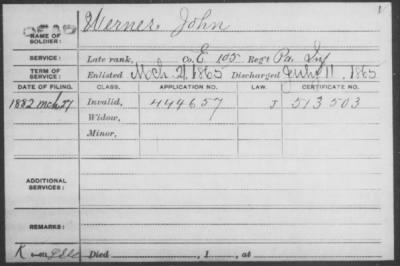 DEAD
NAME OF SOLDIER: Werner John
SERVICE: Late rank, Co. E 105 Reg't Pa. Inf
TERM OF SERVICE: Enlisted Mch. 2, 1865 Discharged July 11, 1865
DATE OF FILING. CLASS. APPLICATION NO. LAW. CERTIFICATE NO.
1882 Mch 27 Invalid, 444657 J 513503
Widow,
Minor,
ADDITIONAL SERVICES:
REMARKS:
Died , 1 , at